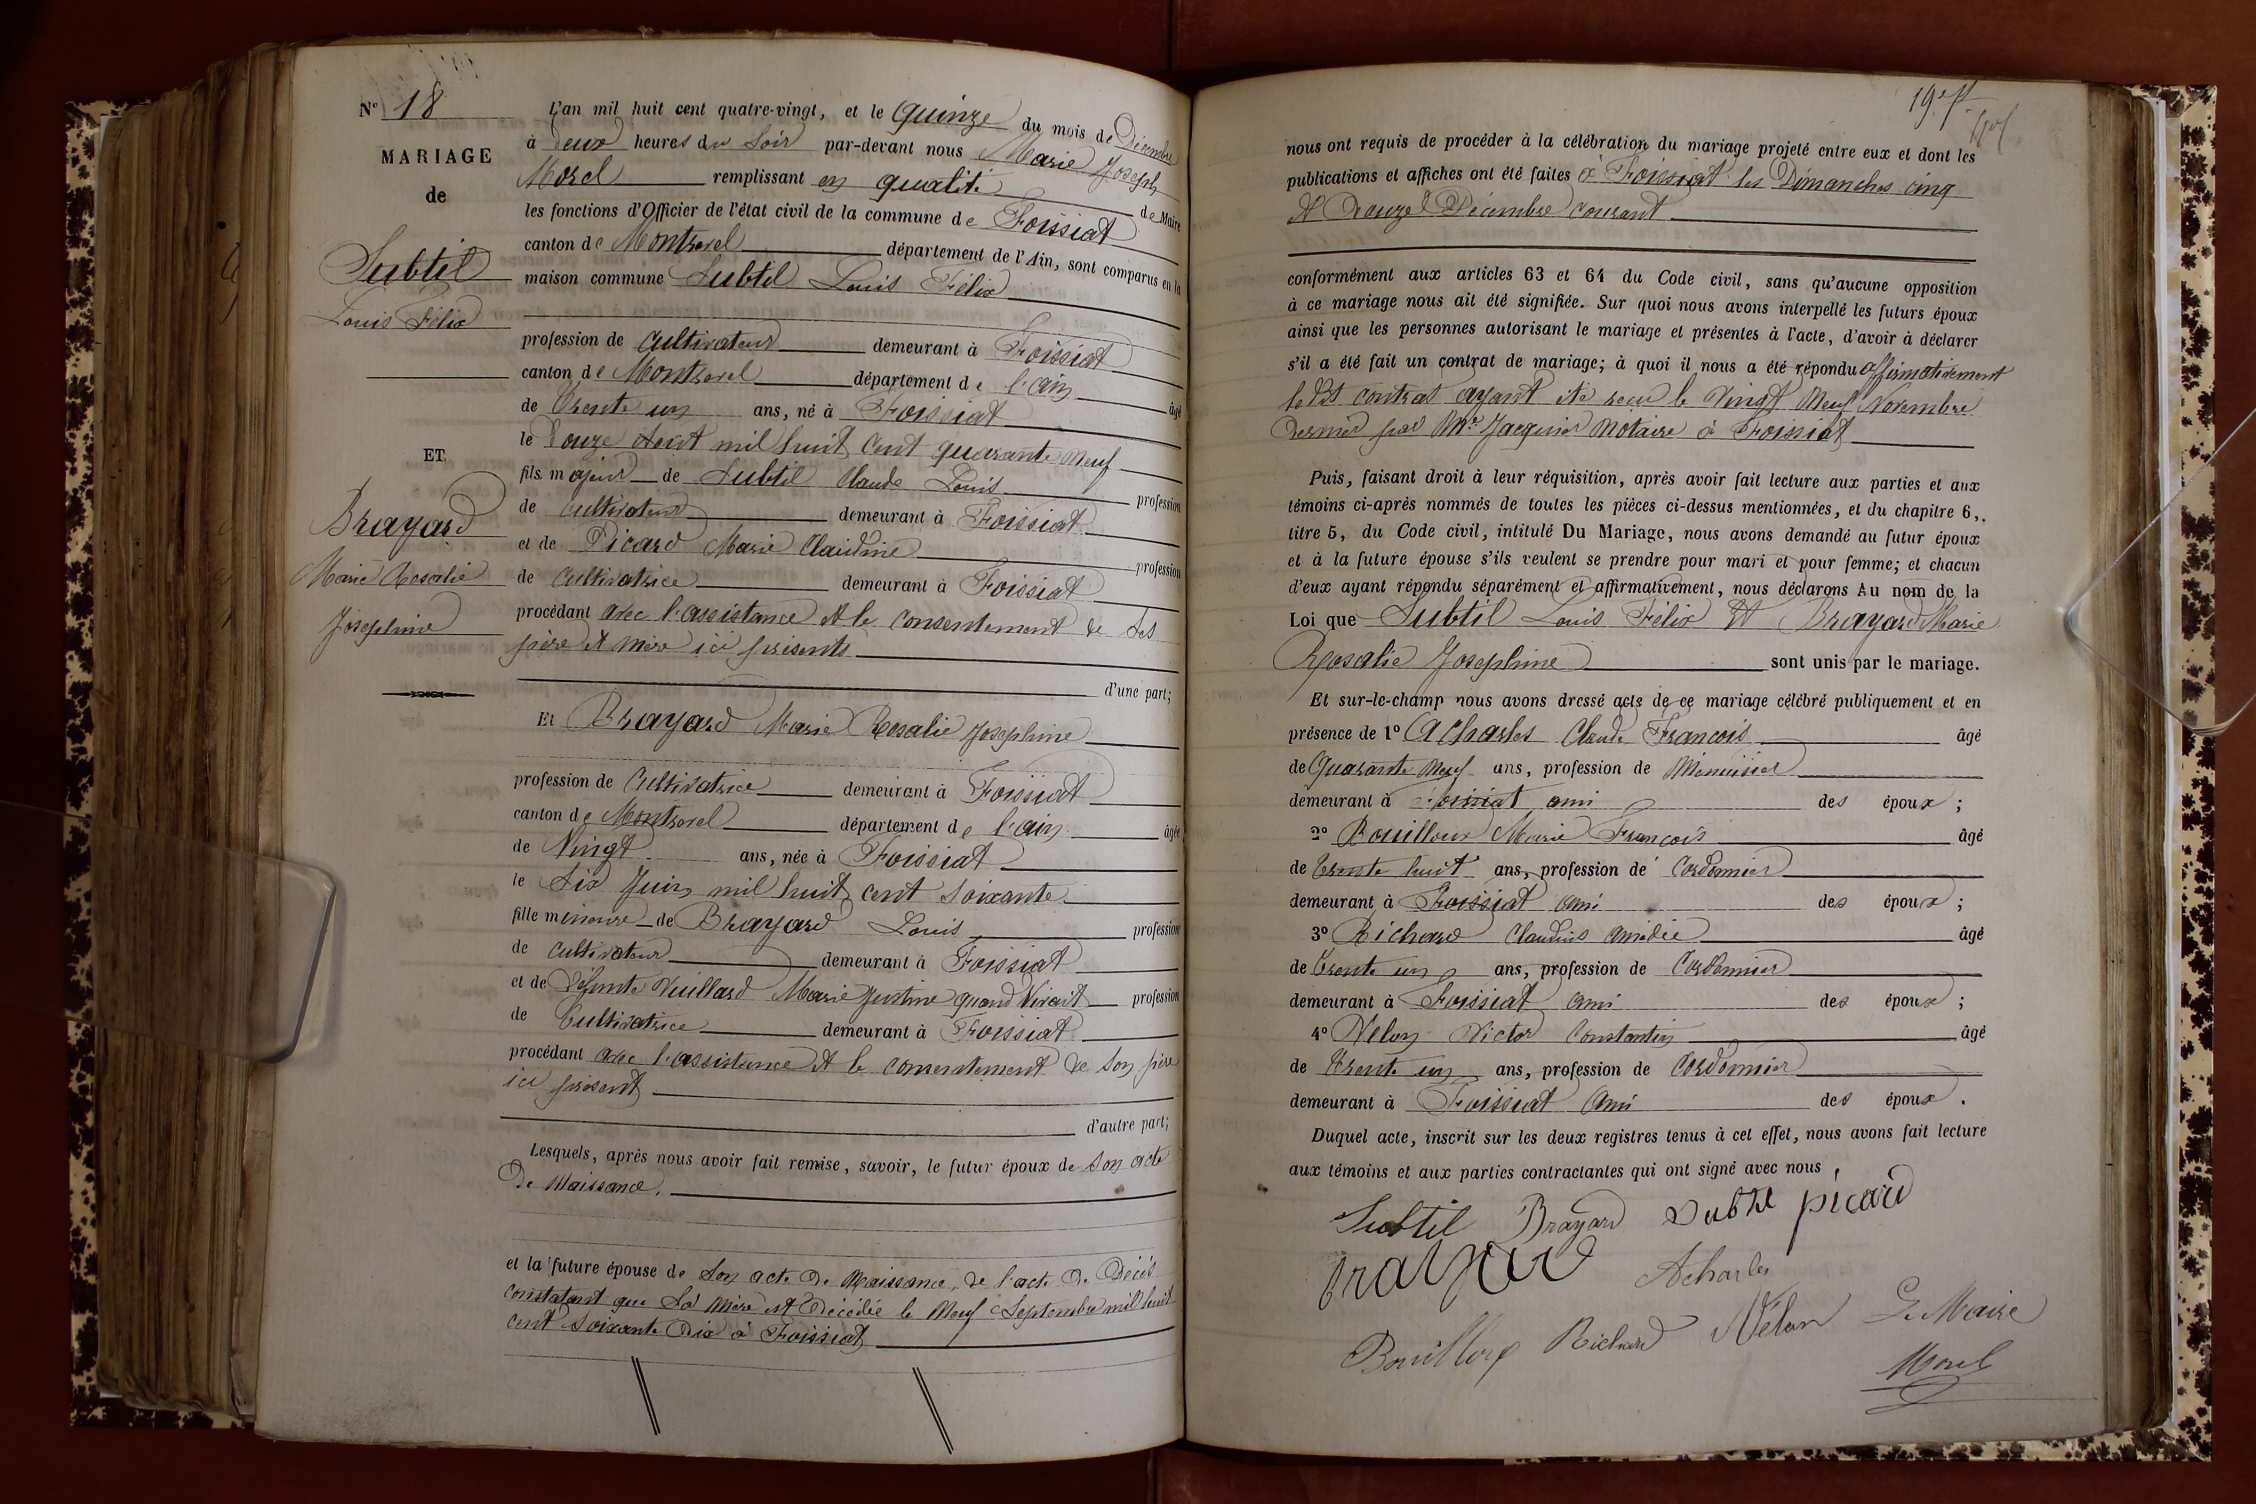 N° 18
MARIAGE
de
Subtil
Louis Félix
ET
Brayard
Marie Rosalie
Josephine
L'an mil huit cent quatre-vingt, et le quinze du mois de Décembre
à deux heures du Soir par-devant nous Marie Joseph
Morel remplissant en qualité de Maire
les fonctions d'Officier de l'état civil de la commune de Foissiat
canton de Montrevel département de l'Ain, sont comparus en la
maison commune Subtil Louis Félix
profession de cultivateur demeurant à Foissiat
canton de Montrevel département de l'ain âgé
de trente un ans, né à Foissiat
le Douze Aout mil huit cent quarante neuf
fils majeur de Subtil Claude Louis profession
de cultivateur demeurant à Foissiat
et de Picard Marie Claudine profession
de cultivatrice demeurant à Foissiat
procédant avec l'assistance et le consentement de Ses
père et mère ici présents
d'une part;
Et Brayard Marie Rosalie Josephine
profession de Cultivatrice demeurant à Foissiat
canton de Montrevel département de l'ain âgée
de Vingt ans, née à Foissiat
le Six Juin mil huit cent soixante
fille mineure de Brayard Louis profession
de cultivateur demeurant à Foissiat
et de Défunte Vuillard Marie Justine quand Vivait profession
de Cultivatrice demeurant à Foissiat
procédant avec l'assistance et le consentement de Son père
ici présent
d'autre part;
Lesquels, après nous avoir fait remise, savoir, le futur époux de Son acte
De Naissance.
et la future épouse de Son acte De Naissance, de l'acte De Décès
constatant que Sa mère est Décédée le Neuf Septembre mil huit
cent Soixante Dix à Foissiat
19e ft
nous ont requis de procéder à la célébration du mariage projeté entre eux et dont les
publications et affiches ont été faites à Foissiat les Dimanches cinq
et Douze Décembre courant
conformément aux articles 63 et 64 du Code civil, sans qu'aucune opposition
à ce mariage nous ait été signifiée. Sur quoi nous avons interpellé les futurs époux
ainsi que les personnes autorisant le mariage et présentes à l'acte, d'avoir à déclarer
s'il a été fait un contrat de mariage; à quoi il nous a été répondu affirmativement
le Dit contrat ayant été reçu le Vingt Neuf Novembre
dernier par Me Jacquier Notaire à Foissiat
Puis, faisant droit à leur réquisition, après avoir fait lecture aux parties et aux
témoins ci-après nommés de toutes les pièces ci-dessus mentionnées, et du chapitre 6,
titre 5, du Code civil, intitulé Du Mariage, nous avons demandé au futur époux
et à la future épouse s'ils veulent se prendre pour mari et pour femme; et chacun
d'eux ayant répondu séparément et affirmativement, nous déclarons Au nom de la
Loi que Subtil Louis Félix Et Brayard Marie
Rosalie Josephine sont unis par le mariage.
Et sur-le-champ nous avons dressé acte de ce mariage célébré publiquement et en
présence de 1° Acharles Claude François âgé
de Quarante Neuf ans, profession de Menuisier
demeurant à Foissiat ami des époux ;
2° Bouilloux Marie François âgé
de trente huit ans, profession de Cordonnier
demeurant à Foissiat ami des époux ;
3° Richard Claudius amédée âgé
de trente un ans, profession de Cordonnier
demeurant à Foissiat ami des époux ;
4° Velon Victor Constantin âgé
de trente un ans, profession de Cordonnier
demeurant à Foissiat Ami des époux .
Duquel acte, inscrit sur les deux registres tenus à cet effet, nous avons fait lecture
aux témoins et aux parties contractantes qui ont signé avec nous
Subtil Brayard Subtil picard
brayard Acharles
Bouilloux Richard Vélon Le Maire
Morel